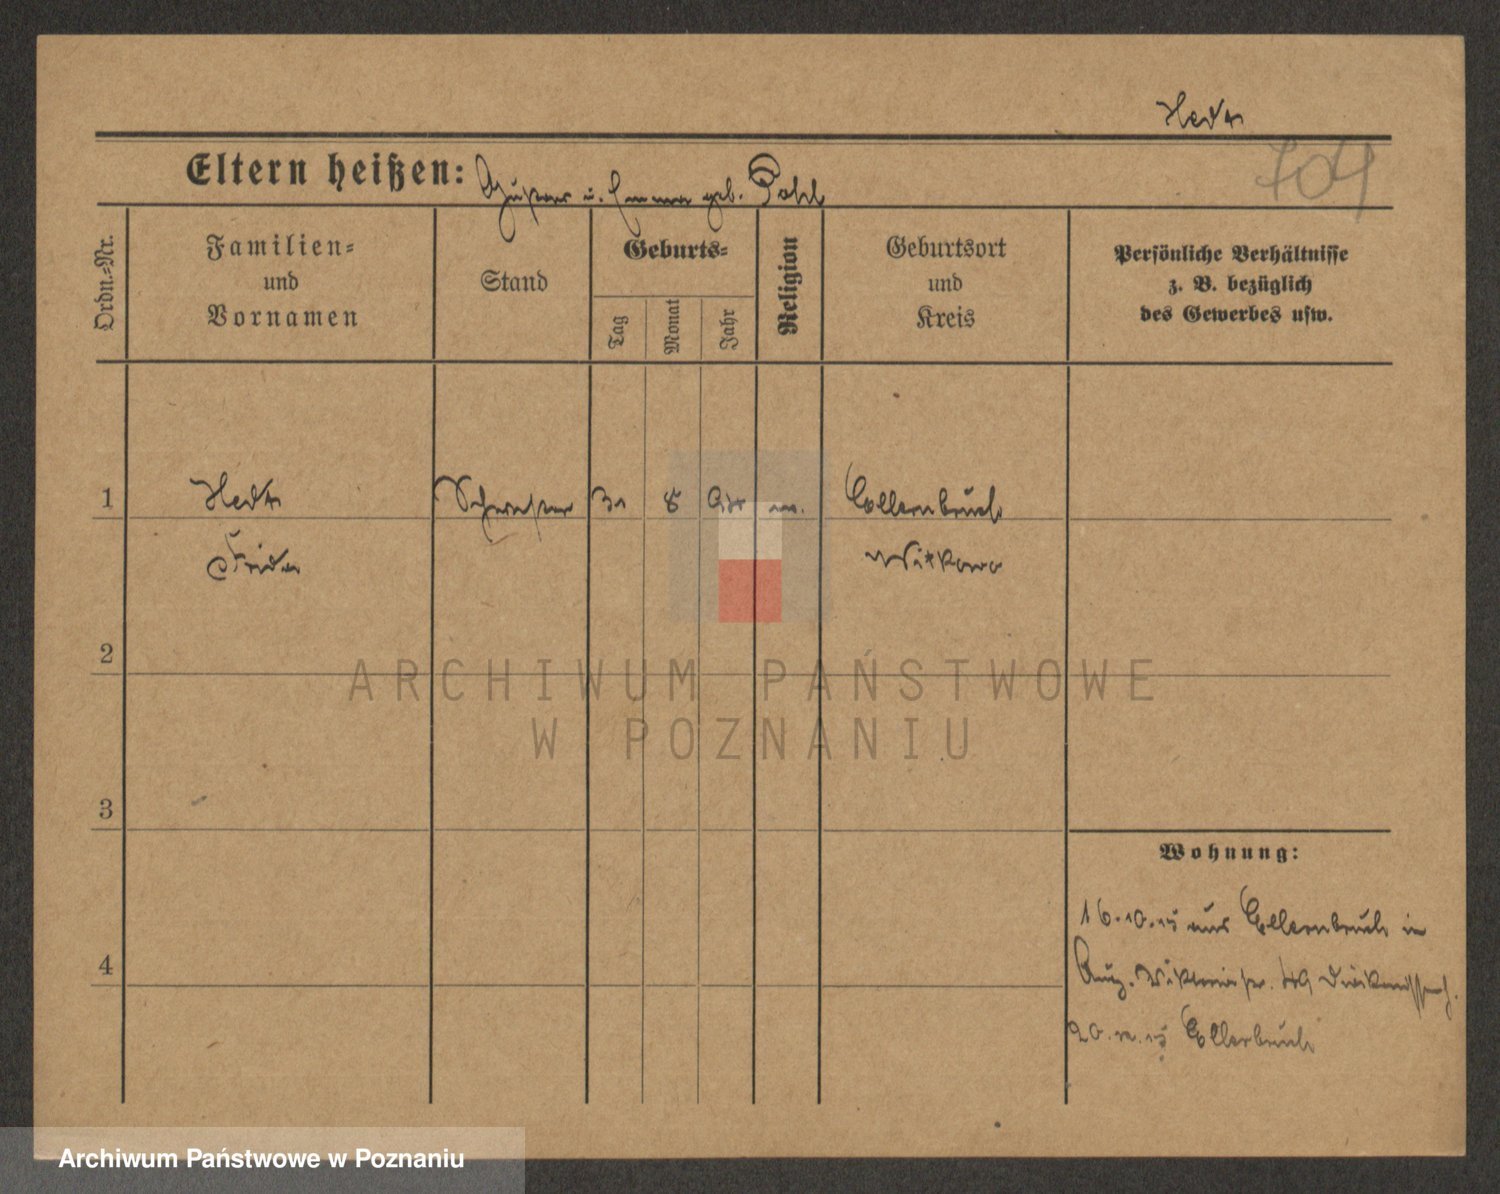 Hedtr
Eltern heißen: Gustav u. Emma geb. Pohl
Ordn.=Nr.
Familien=
und
Vornamen
Stand
Geburts=
Tag
Monat
Jahr
Religion
Geburtsort
und
Kreis
Persönliche Verhältnisse
z. B. bezüglich
des Gewerbes usw.
1
Schwester
8
Ellernbruch
Frida
Witkowo
2
3
4
Wohnung:
16.10.15 aus Ellernbruch in
Aug. Viktoriastr.
Ellerbruch
ARCHIWUM PAŃSTWOWE
W POZNANIU
Archiwum Państwowe w Poznaniu